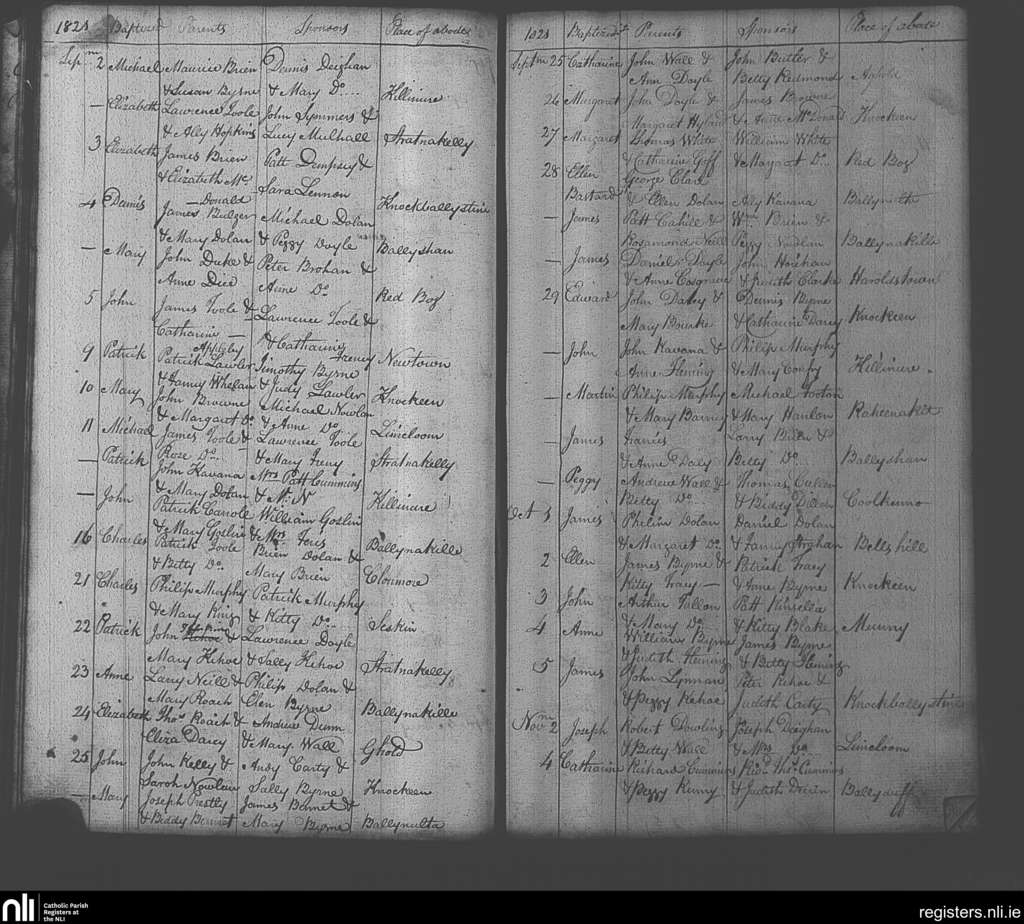 1828 Baptized Parents Sponsors Place of abode
Septm 2 Michael Maurice Brien Dennis Deighan
& Susan Byrne & Mary Do Killinure
— Elizabeth Lawrence Toole John Symmers &
& Ally Hopkins Lucy Mulhall Stratnakelly
3 Elizabeth James Brien Patt Dempsey &
& Elizabeth Mc Sara Lennon
—Donald Knockballystine
4 Dennis James Bulger Michael Dolan
& Mary Dolan & Peggy Doyle Ballyshan
— Mary John Duke & Peter Brohan &
Anne Do Red Bog
5 John James Toole & Lawrence Toole &
Catharine —
Appleby & Catharine Newtown
9 Patrick Patrick Lawler Timothy Byrne
& Fanny Whelan & Judy Lawler Knockeen
10 Mary John Browne Michael Nowlan
& Margaret Do & Anne Do Linicloom
11 Michael James Toole & Lawrence Toole
Rose Do & Mary Freny Stratnakelly
— Patrick John Kavana Mrs Patt Cummins
& Mary Dolan & Mr N Killinure
— John Patrick Carrole William Goslin
& Mary Goslin & Mrs Ballynakille
16 Charles Patrick Toole Brien Dolan &
& Betty Do Mary Brien Clonmore
21 Charles Philip Murphy Patrick Murphy
& Mary King & Kitty Do Seskin
22 Patrick John Kehoe & Lawrence Doyle
Mary Kehoe & Sally Kehoe Stratnakelly
23 Anne Larry Neill & Philip Dolan &
Mary Roach Ellen Byrne Ballynakille
24 Elizabeth Thos Roach & Andrew Dunn
Eliza Darcy & Mary Wall Ghold
25 John John Kelly & Andy Carty &
Sarah Nowlan Sally Byrne Knockeen
— Mary Joseph Prestly James Bennet &
& Biddy Bennet Mary Byrne Ballynulta
1828 Baptized Parents Sponsors Place of abode
Septm 25 Catharine John Wall & John Butler &
Ann Doyle Betty Redmond Aghold
26 Margaret John Doyle & James Browne
Margaret Hyland & Anne McDonald Knockeen
27 Margaret Thomas White William White
& Catharine Goff & Margaret Do Red Bog
28 Ellen George Clark
Bastard & Ellen Dolan Ally Kavana
— James Patt Cahill & Wm Brien &
Rosamond Neill Peggy Nowlan Ballynakille
— James Daniel Doyle John Horehan
& Anne Cosgrave & Judith Clarke Haroldstown
29 Edward John Daley & Dennis Byrne
Mary Bourke & Catharine Darcy Knockeen
— John John Kavana & Philip Murphy
Anne Fleming & Mary Confry Killinure
— Martin Philip Murphy Michael Tooton
& Mary Barney & Mary Hanlon Raheenakit
— James Francis Larry Brien &
& Anne Daly Betty Do Ballyshan
— Peggy Andrew Wall & Thomas Cullen
Betty Do & Biddy Dillon Coolkenno
Oct 1 James Phelim Dolan Daniel Dolan
& Margaret Do & Fanny Bells hill
2 Ellen James Byrne & Patrick Tracy
Kitty Tracy — & Anne Byrne Knockeen
3 John Arthur Fallon Patt Kinsella
& Mary Do & Kitty Blake Munny
4 Anne William Byrne James Byrne
& Judith Fleming & Betty Fleming
5 James John Lynnan Peter Kehoe &
& Peggy Kehoe Judith Carty Knockballystine
Novm 2 Joseph Robert Dowling Joseph Deighan
& Betty Wall & Mrs Do Linicloom
4 Catharine Richard Cummins Revd Thos Cummins
& Peggy Kenny & Judith Ballyduff
nli
Catholic Parish
Registers at
the NLI
registers.nli.ie